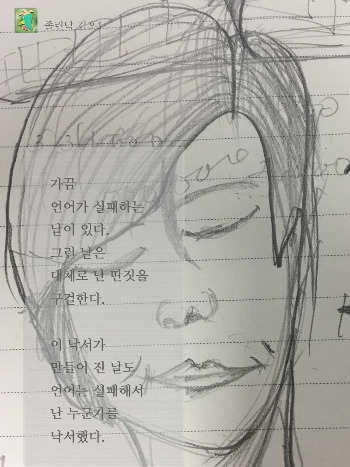 졸린닥 김훈
가끔
언어가 실패하는
날이 있다.
그런 날은
대체로 난 딴짓을
구걸한다.
이 낙서가
만들어 진 날도
언어는 실패해서
난 누군가를
낙서했다.